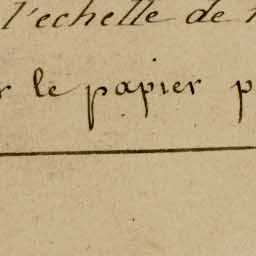 l'echelle de
le papier